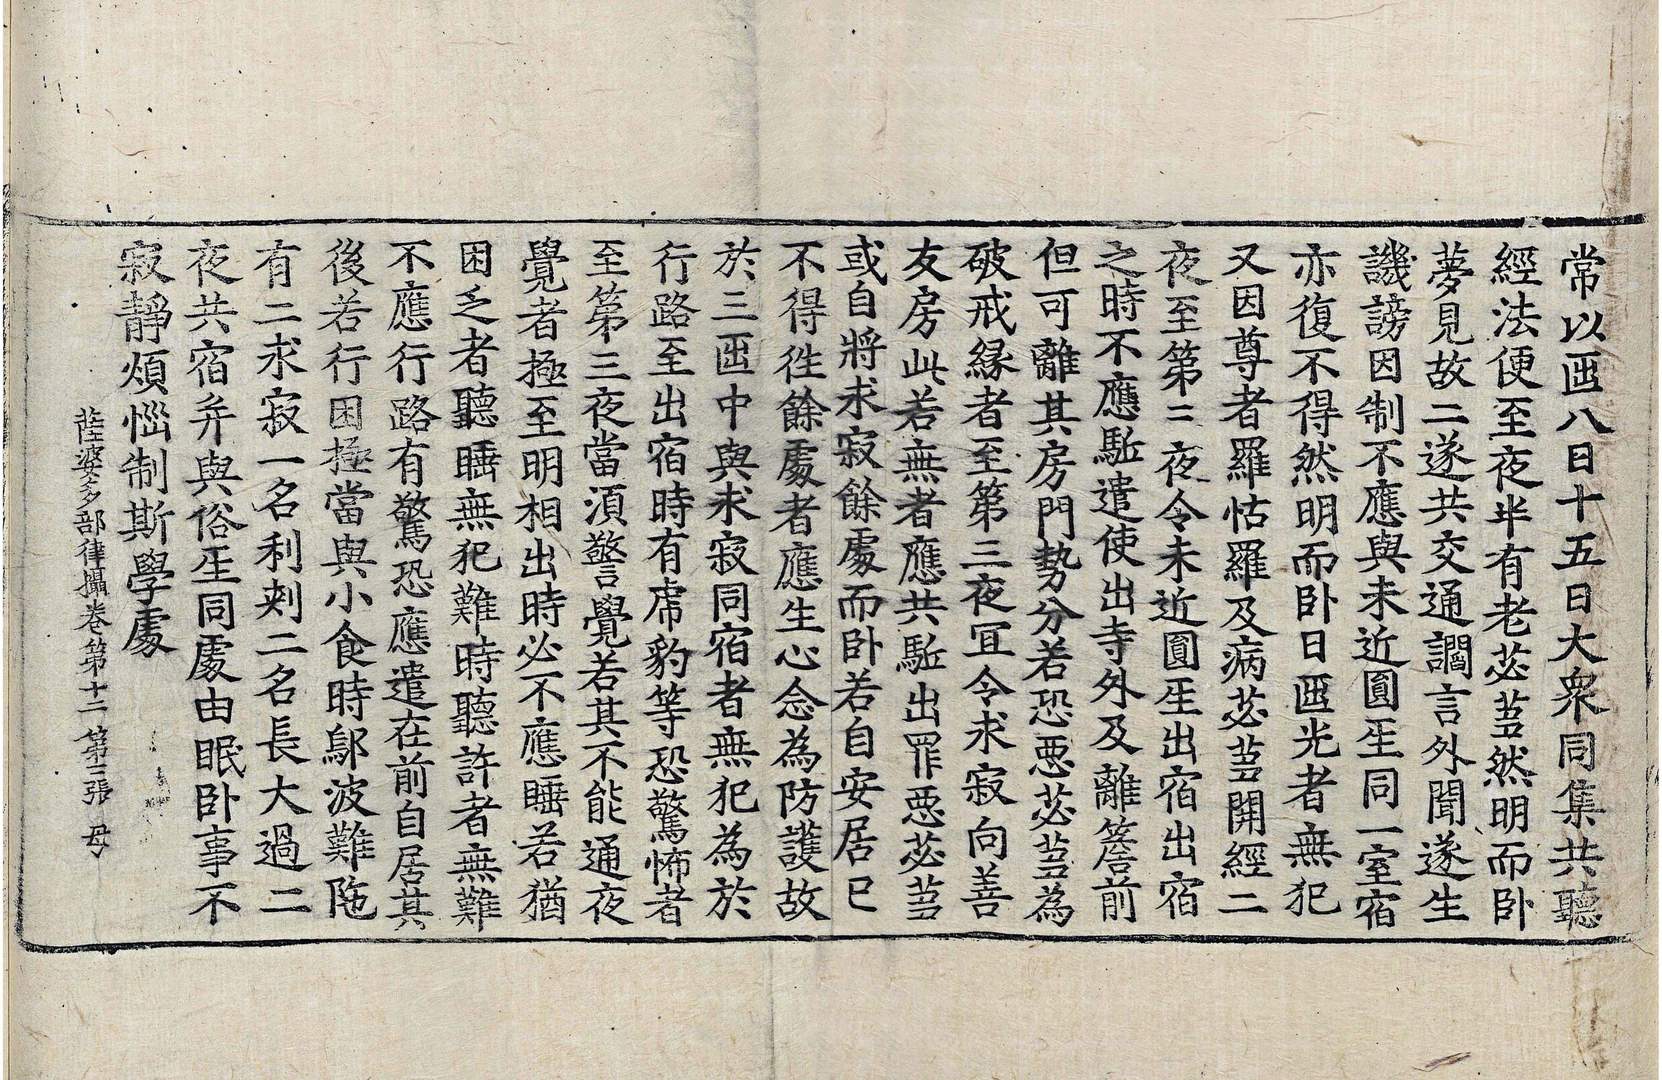 常以𠥱八日十五日大衆同集共聽
經法便至夜半有老苾芻然明而卧
夢見故二遂共交通讇言外聞遂生
譏謗因制不應與未近圓𤯔同一室宿
亦復不得然明而卧日𠥱光者無犯
又因尊者羅怙羅及病苾芻開經二
夜至第三夜令未近圓𤯔出宿出宿
之時不應駈遣使出寺外及離簷前
但可離其房門勢分若恐惡苾芻為
破戒縁者至第三夜冝令求寂向善
友房此若無者應共駈出罪惡苾芻
或自將求寂餘處而卧若自安居已
不得徃餘處者應生心念為防護故
於三𠥱中與求寂同宿者無犯為於
行路至出宿時有虎豹等恐驚怖者
至第三夜當須警覺若其不能通夜
覺者極至明相出時必不應睡若猶
困乏者聽睡無犯難時聽許者無難
不應行路有驚恐應遣在前自居其
後若行困極當與小食時鄔波難陁
有二求寂一名利刾二名長大過二
夜共宿并與俗𤯔同處由眠卧事不
寂靜煩惱制斯學處
薩婆多部律攝卷第十二 第三張 母